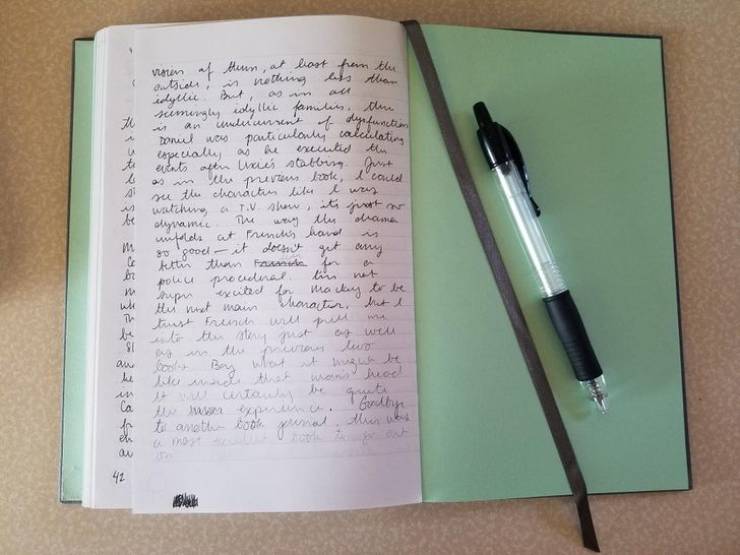 vision of them, at least from the
outside, is nothing less than
idyllic. But, as in all
seemingly idyllic families, there
is an undercurrent of dysfunction.
Daniel was particularly calculating
especially as he executed the
events after Lexie's stabbing. Just
as in the previous book, I could
see the characters like I was
watching a T.V. show, its just so
dynamic. The way the drama
unfolds at French's hand is
so good — it doesn't get any
better than for a
police procedural. I'm not
super excited for Mackey to be
the next main character, but I
trust French will pull me
into the story just as well
as in the previous two
books. Boy what it might be
like inside that man's head
It will certainly be quite
the experience. Goodbye
to another book journal, this was
a most book to go out
on
42